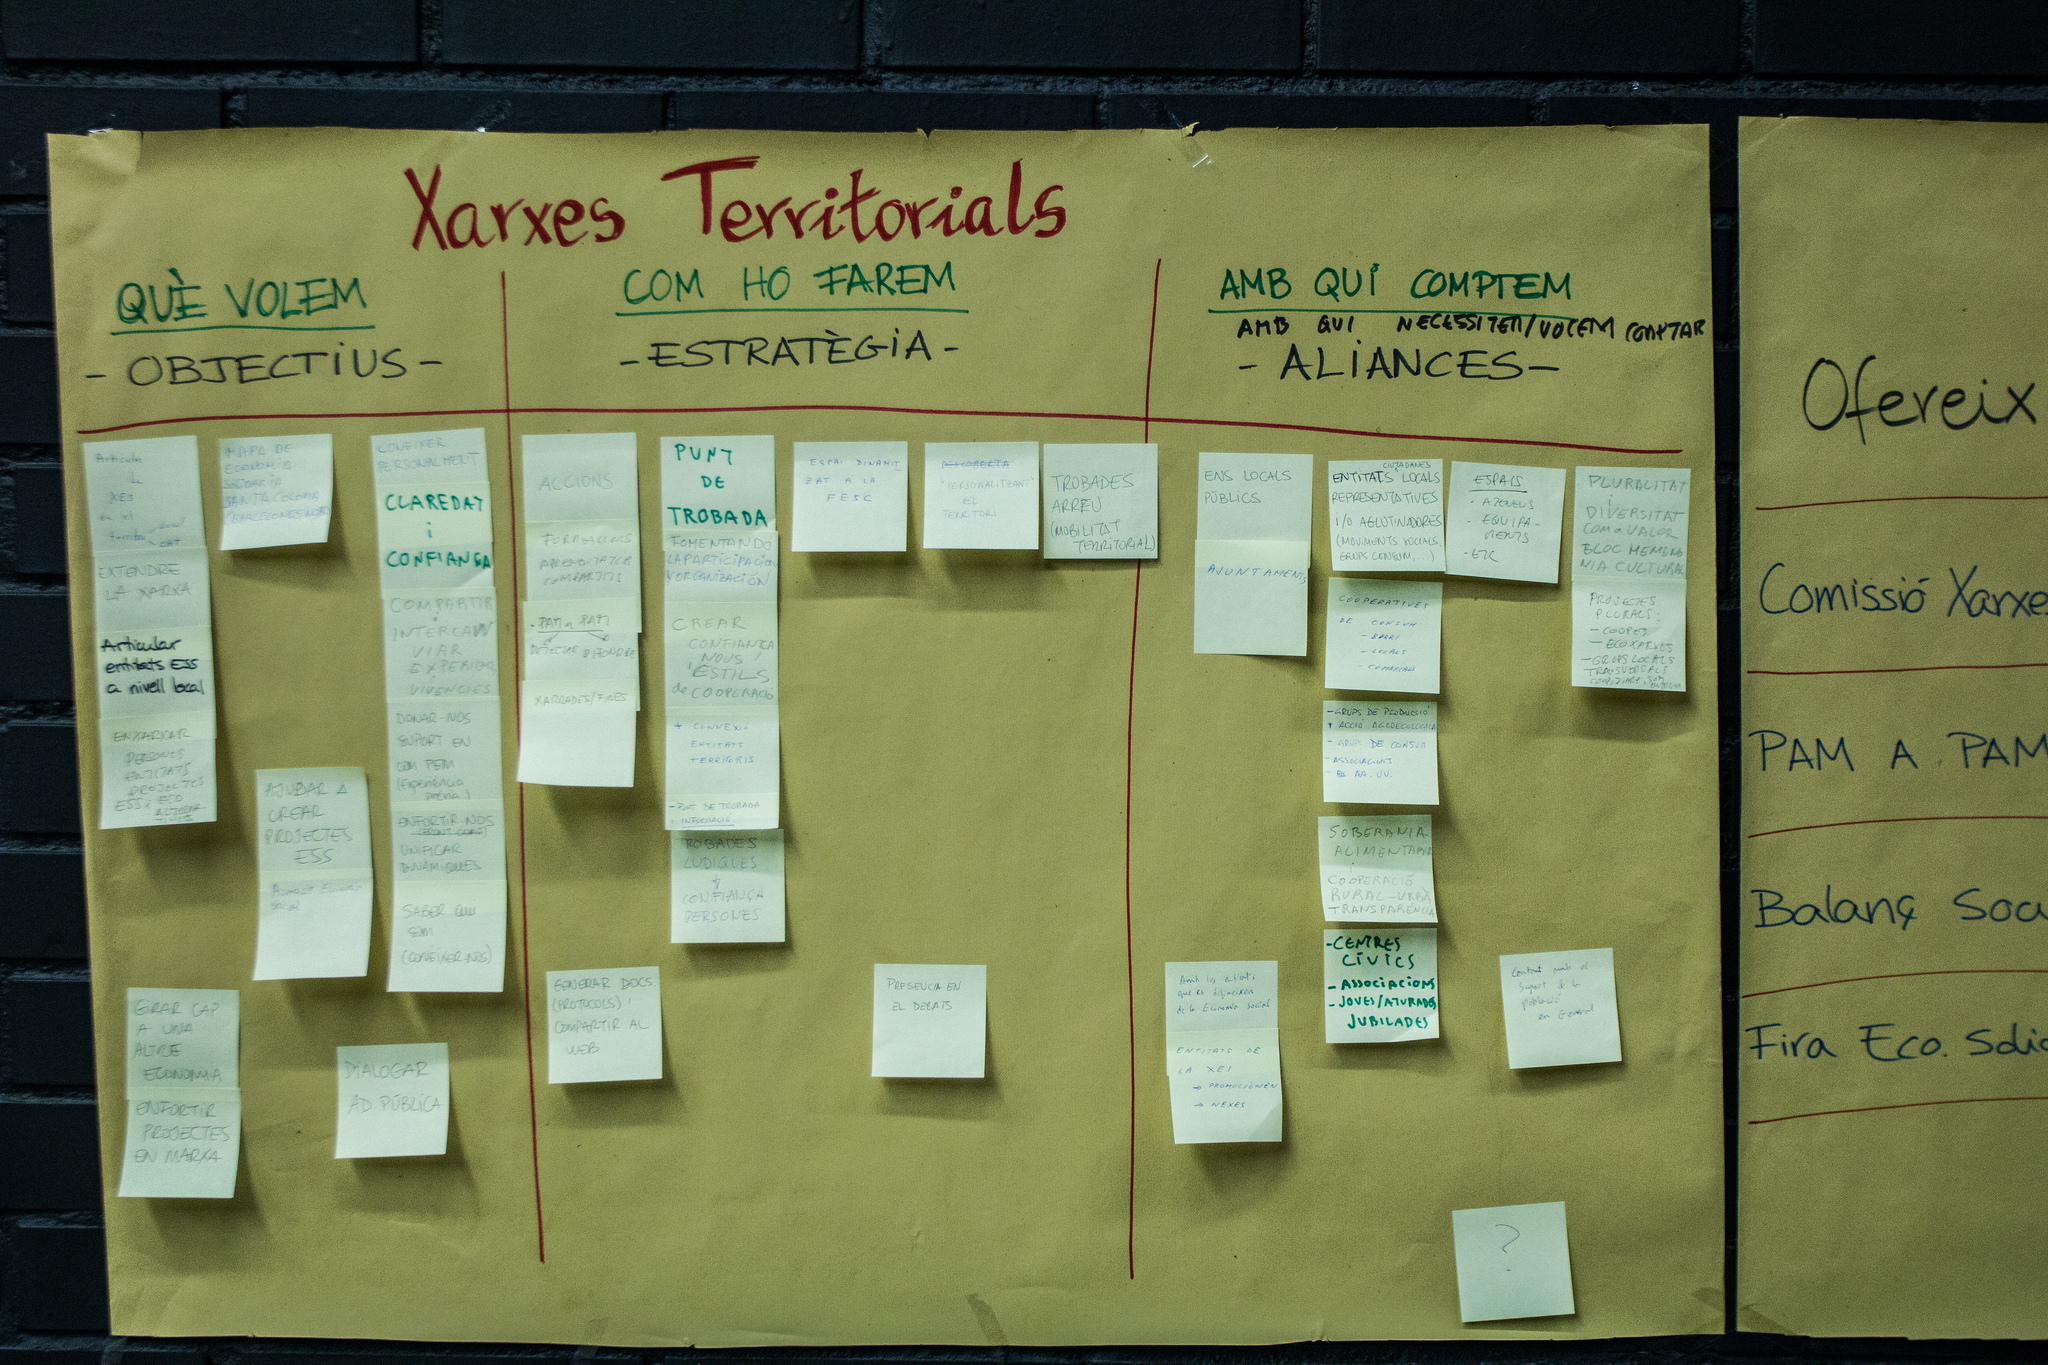 Xarxes Territorials
QUÈ VOLEM
- OBJECTIUS -
Articular
la
XES
en el
EXTENDRE
LA XARXA
Articular
entitats ESS
a nivell local
ENXARXAR
PERSONES
ENTITATS
PROJECTES
MAPA DE
ECONOMIA
SOLIDARIA
SANTA COLOMA
CONEIXER
PERSONALMENT
CLAREDAT
i
CONFIANÇA
COMPARTIR
I
INTERCAN
VIAR
EXPERIEN
VIVENCIES
DONAR-NOS
SUPORT EN
COM FEM
(Experiència
ENFORTIR-NOS
UNIFICAR
DINÀMIQUES
SABER QUI
SOM
(CONÈIXER-NOS)
AJUDAR A
CREAR
PROJECTES
ESS
GIRAR CAP
A UNA
ALTRE
ECONOMIA
ENFORTIR
PROJECTES
EN MARXA
DIALOGAR
AD. PÚBLICA
COM HO FAREM
- ESTRATÈGIA -
ACCIONS
FORMACIONS
COMPARTITS
- PAM a PAM
DETECTAR DIFONDRE
XARRADES/FIRES
PUNT
DE
TROBADA
FOMENTANDO
LA PARTICIPACION
Y ORGANIZACIÓN
CREAR
CONFIANÇA
NOUS
ESTILS
de COOPERACIÓ
+ CONNEXIÓ
ENTITATS
TERRITORIS
- PUNT DE TROBADA
INFORMACIÓ
TROBADES
LUDIQUES
↓
CONFIANÇA
PERSONES
ESPAI DINAMIT
ZAT A LA
FESC
DESCOBERTA
"PERSONALITZANT"
EL
TERRITORI
TROBADES
ARREU
(MOBILITAT
TERRITORIAL)
GENERAR DOCS
(PROTOCOLS) i
COMPARTIR AL
WEB
PRESENCIA EN
EL DEBATS
AMB QUI COMPTEM
AMB QUI NECESSITEM/VOLEM COMPTAR
- ALIANCES -
ENS LOCALS
PÚBLICS
AJUNTAMENTS
CIUTADANES
ENTITATS LOCALS
REPRESENTATIVES
I/O AGLUTINADORES
(MOVIMENTS SOCIALS,
GRUPS CONSUM,...)
COOPERATIVES
DE CONSUM
- BARRI
- LOCALS
- COMARCALS
- GRUPS DE PRODUCCIÓ
ACCIÓ AGROECOLÒGICA
- GRUP DE CONSUM
- ASSOCIACIONS
AA. VV.
SOBERANIA
ALIMENTARIA
i
COOPERACIÓ
RURAL-URBÀ
TRANSPARÈNCIA
- CENTRES
CÍVICS
- ASSOCIACIONS
- JOVES/ATURADES
JUBILADES
ESPAIS
- ATENEUS
- EQUIPA-
MENTS
- ETC
PLURALITAT
i
DIVERSITAT
COM a VALOR
CULTURAL
PROJECTES
PLURALS:
- COOPES
- ECOXARXES
- GRUPS LOCALS
TRANSVERSALS
de la Economia Social
ENTITATS DE
LA XES
→ PROMOCIONEN
→ NEXES
Contant amb el
Suport de la
població
en General
?
Ofereix
Comissió Xarxes
PAM A PAM
Balanç Soc
Fira Eco. Solid